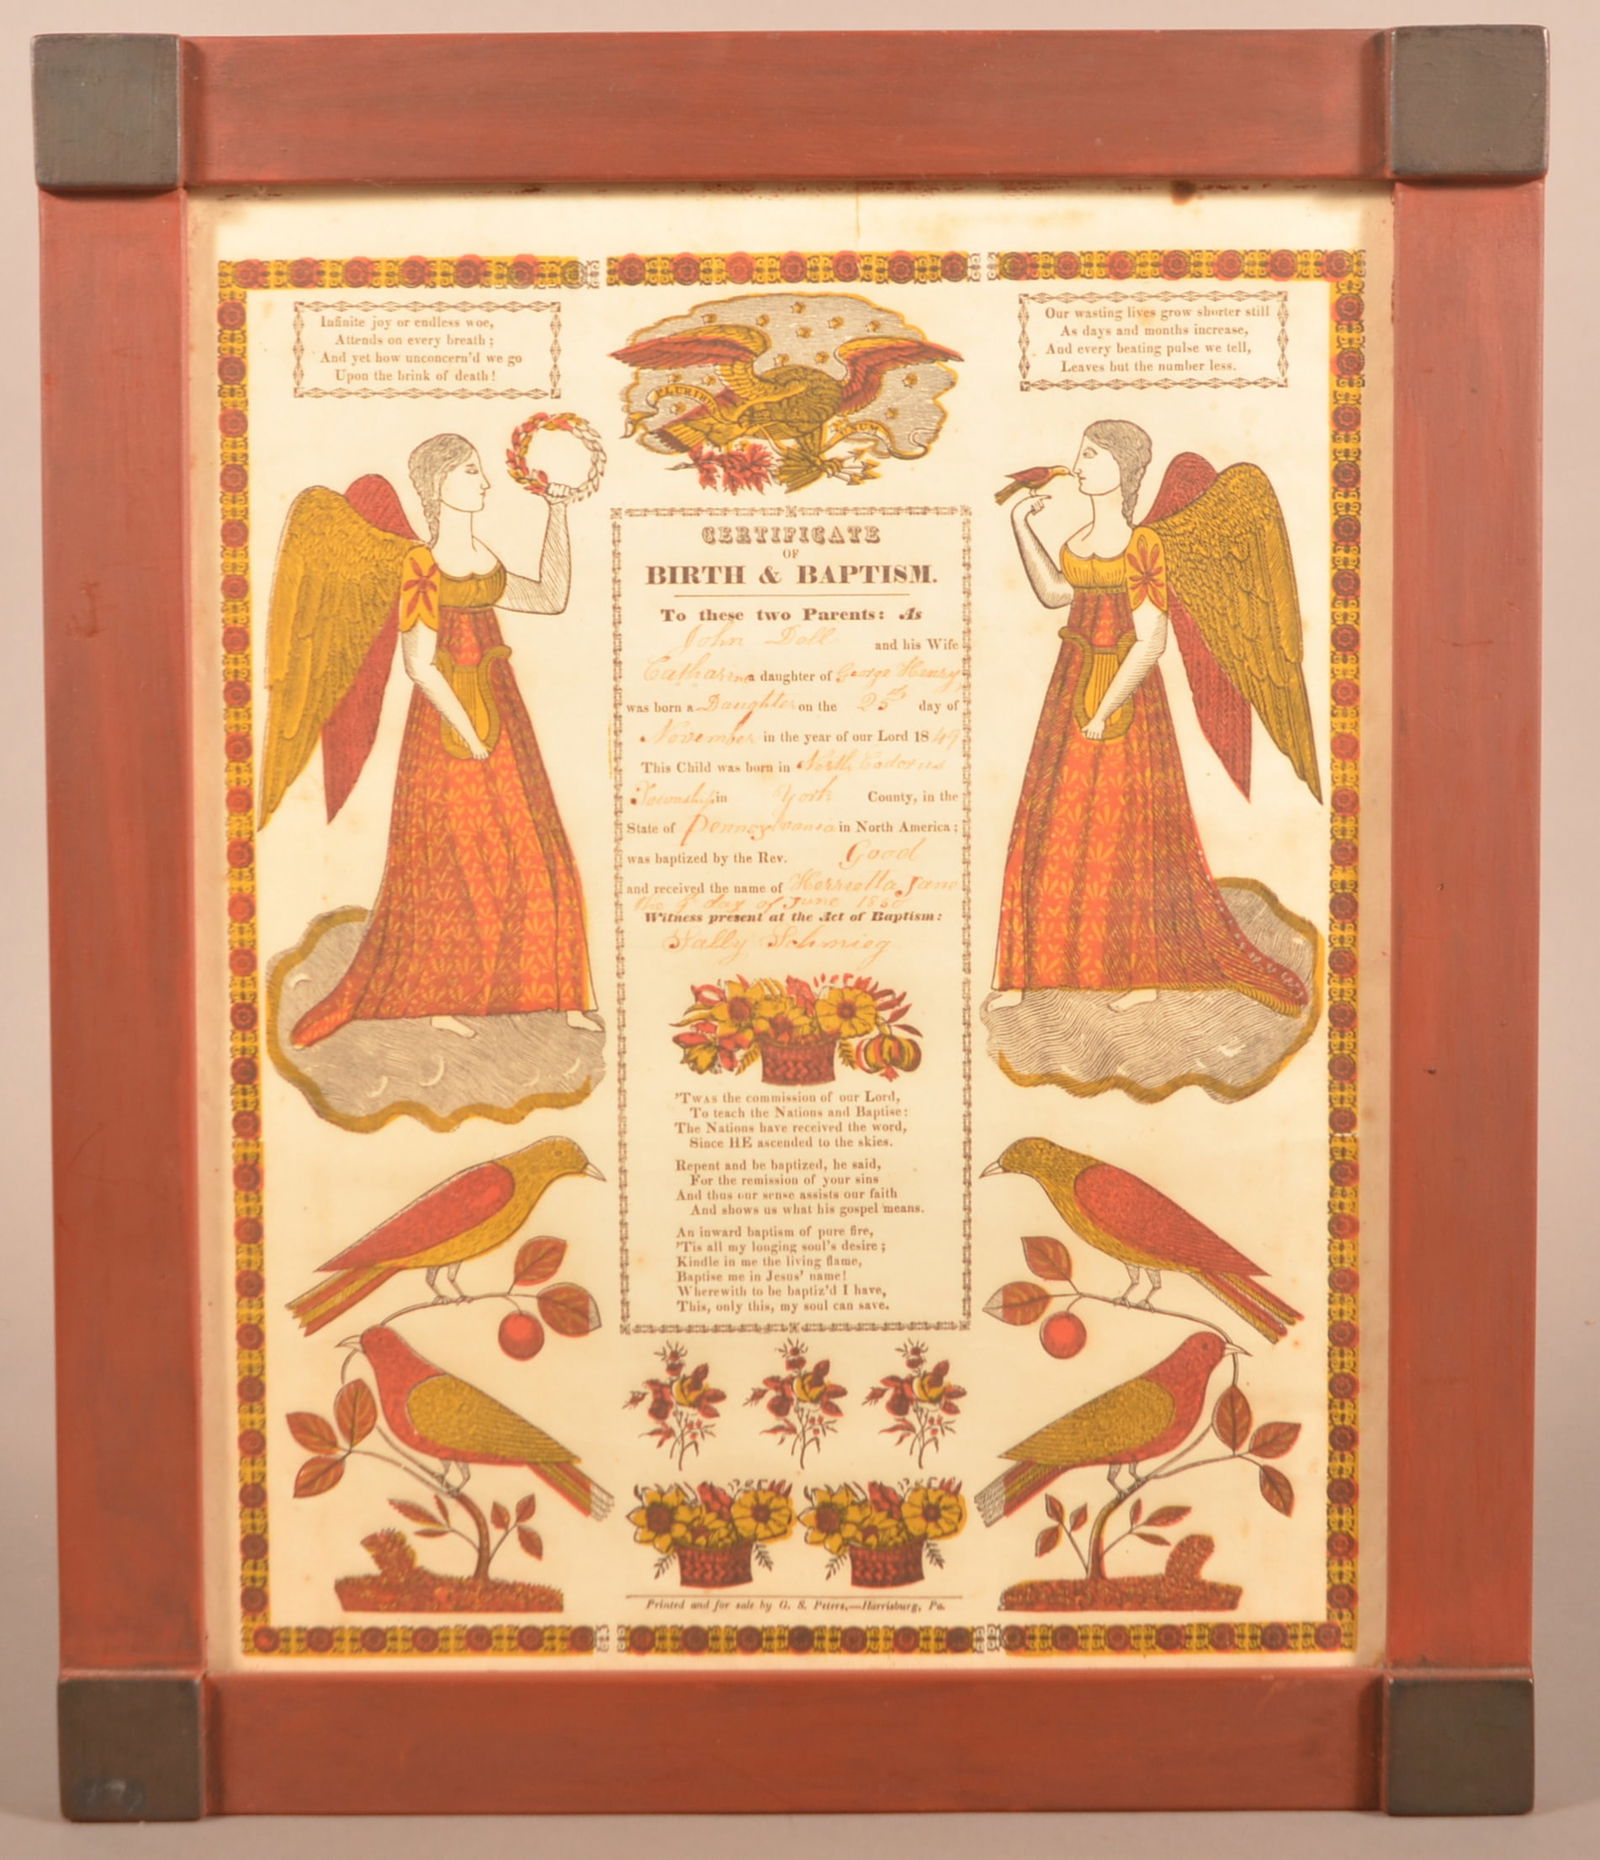 Infinite joy or endless woe,
Attends on every breath ;
And yet how unconcern'd we go
Upon the brink of death!
Our wasting lives grow shorter still
As days and months increase,
And every beating pulse we tell,
Leaves but the number less.
E PLURIBUS
UNUM
CERTIFICATE
OF
BIRTH & BAPTISM.
To these two Parents: As
John Doll and his Wife
Catharina daughter of George Henry
was born a Daughter on the 25th day of
November in the year of our Lord 1849
This Child was born in North Codorus
Township in York County, in the
State of Pennsylvania in North America ;
was baptized by the Rev. Good
and received the name of Herrietta Jane
the 9 day of June 1850
Witness present at the Act of Baptism:
Sally Schmieg
'Twas the commission of our Lord,
To teach the Nations and Baptise:
The Nations have received the word,
Since HE ascended to the skies.
Repent and be baptized, he said,
For the remission of your sins
And thus our sense assists our faith
And shows us what his gospel means.
An inward baptism of pure fire,
'Tis all my longing soul's desire ;
Kindle in me the living flame,
Baptise me in Jesus' name!
Wherewith to be baptiz'd I have,
This, only this, my soul can save.
Printed and for sale by G. S. Peters,—Harrisburg, Pa.